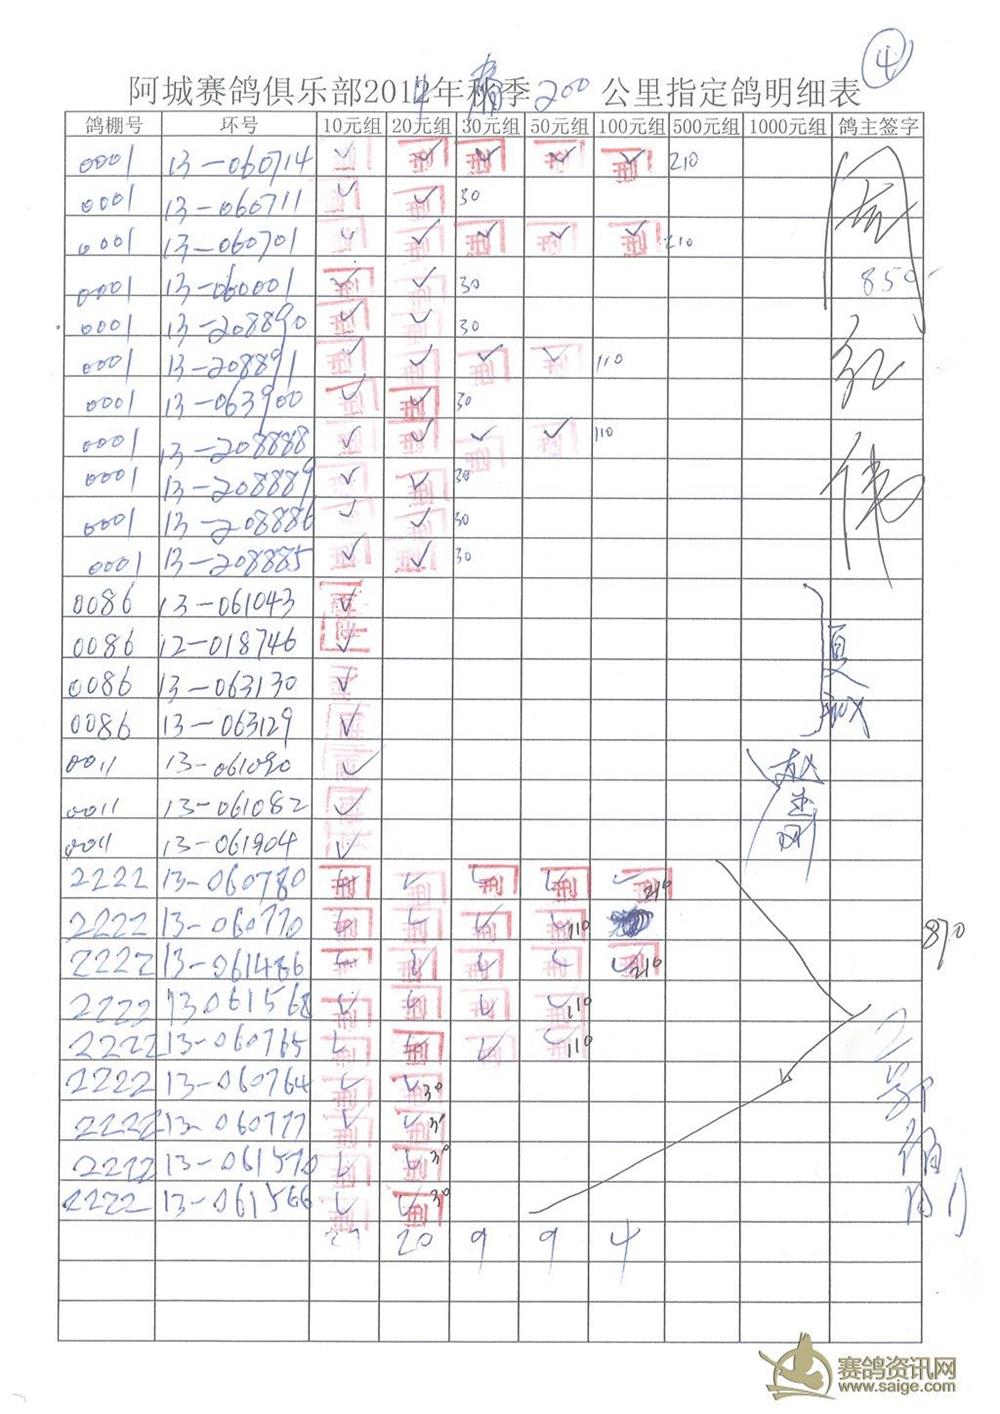 ④
阿城赛鸽俱乐部2012年季200公里指定鸽明细表
鸽棚号 环号 10元组 20元组 30元组 50元组 100元组 500元组 1000元组 鸽主签字
0001 13-060714 ✓ ✓ ✓ ✓ ✓ 210
0001 13-060711 ✓ ✓ 30
0001 13-060701 ✓ ✓ ✓ ✓ ✓ 210
0001 13-060001 ✓ ✓ 30 850
0001 13-208890 ✓ ✓ 30
0001 13-208891 ✓ ✓ ✓ ✓ 110
0001 13-063900 ✓ ✓ 30
0001 13-208888 ✓ ✓ ✓ ✓ 110
0001 13-208889 ✓ ✓ 30
0001 13-208886 ✓ ✓ 30
0001 13-208885 ✓ ✓ 30
0086 13-061043 ✓
0086 12-018746 ✓
0086 13-063130 ✓
0086 13-063129 ✓
0011 13-061090 ✓
0011 13-061082 ✓
0011 13-061904 ✓
2222 13-060780 ✓ ✓ ✓ ✓ ✓ 210
2222 13-060770 ✓ ✓ ✓ ✓ 110 870
2222 13-061486 ✓ ✓ ✓ ✓ ✓ 210
2222 13-061568 ✓ ✓ ✓ ✓ 110
2222 13-060765 ✓ ✓ ✓ ✓ 110
2222 13-060764 ✓ ✓ 30
2222 13-060777 ✓ ✓ 30
2222 13-061570 ✓ ✓ 30
2222 13-061566 ✓ ✓ 30
20 9 9 4
赛鸽资讯网
www.saige.com